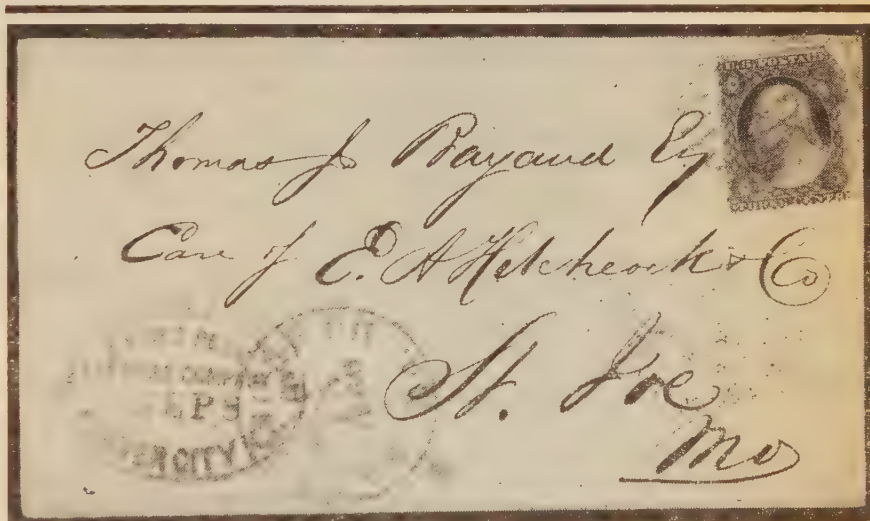 Thomas J Bayaud Esq
Care of E. A Hitchcock & Co
St. Joe
Mo
SEP 8
CITY